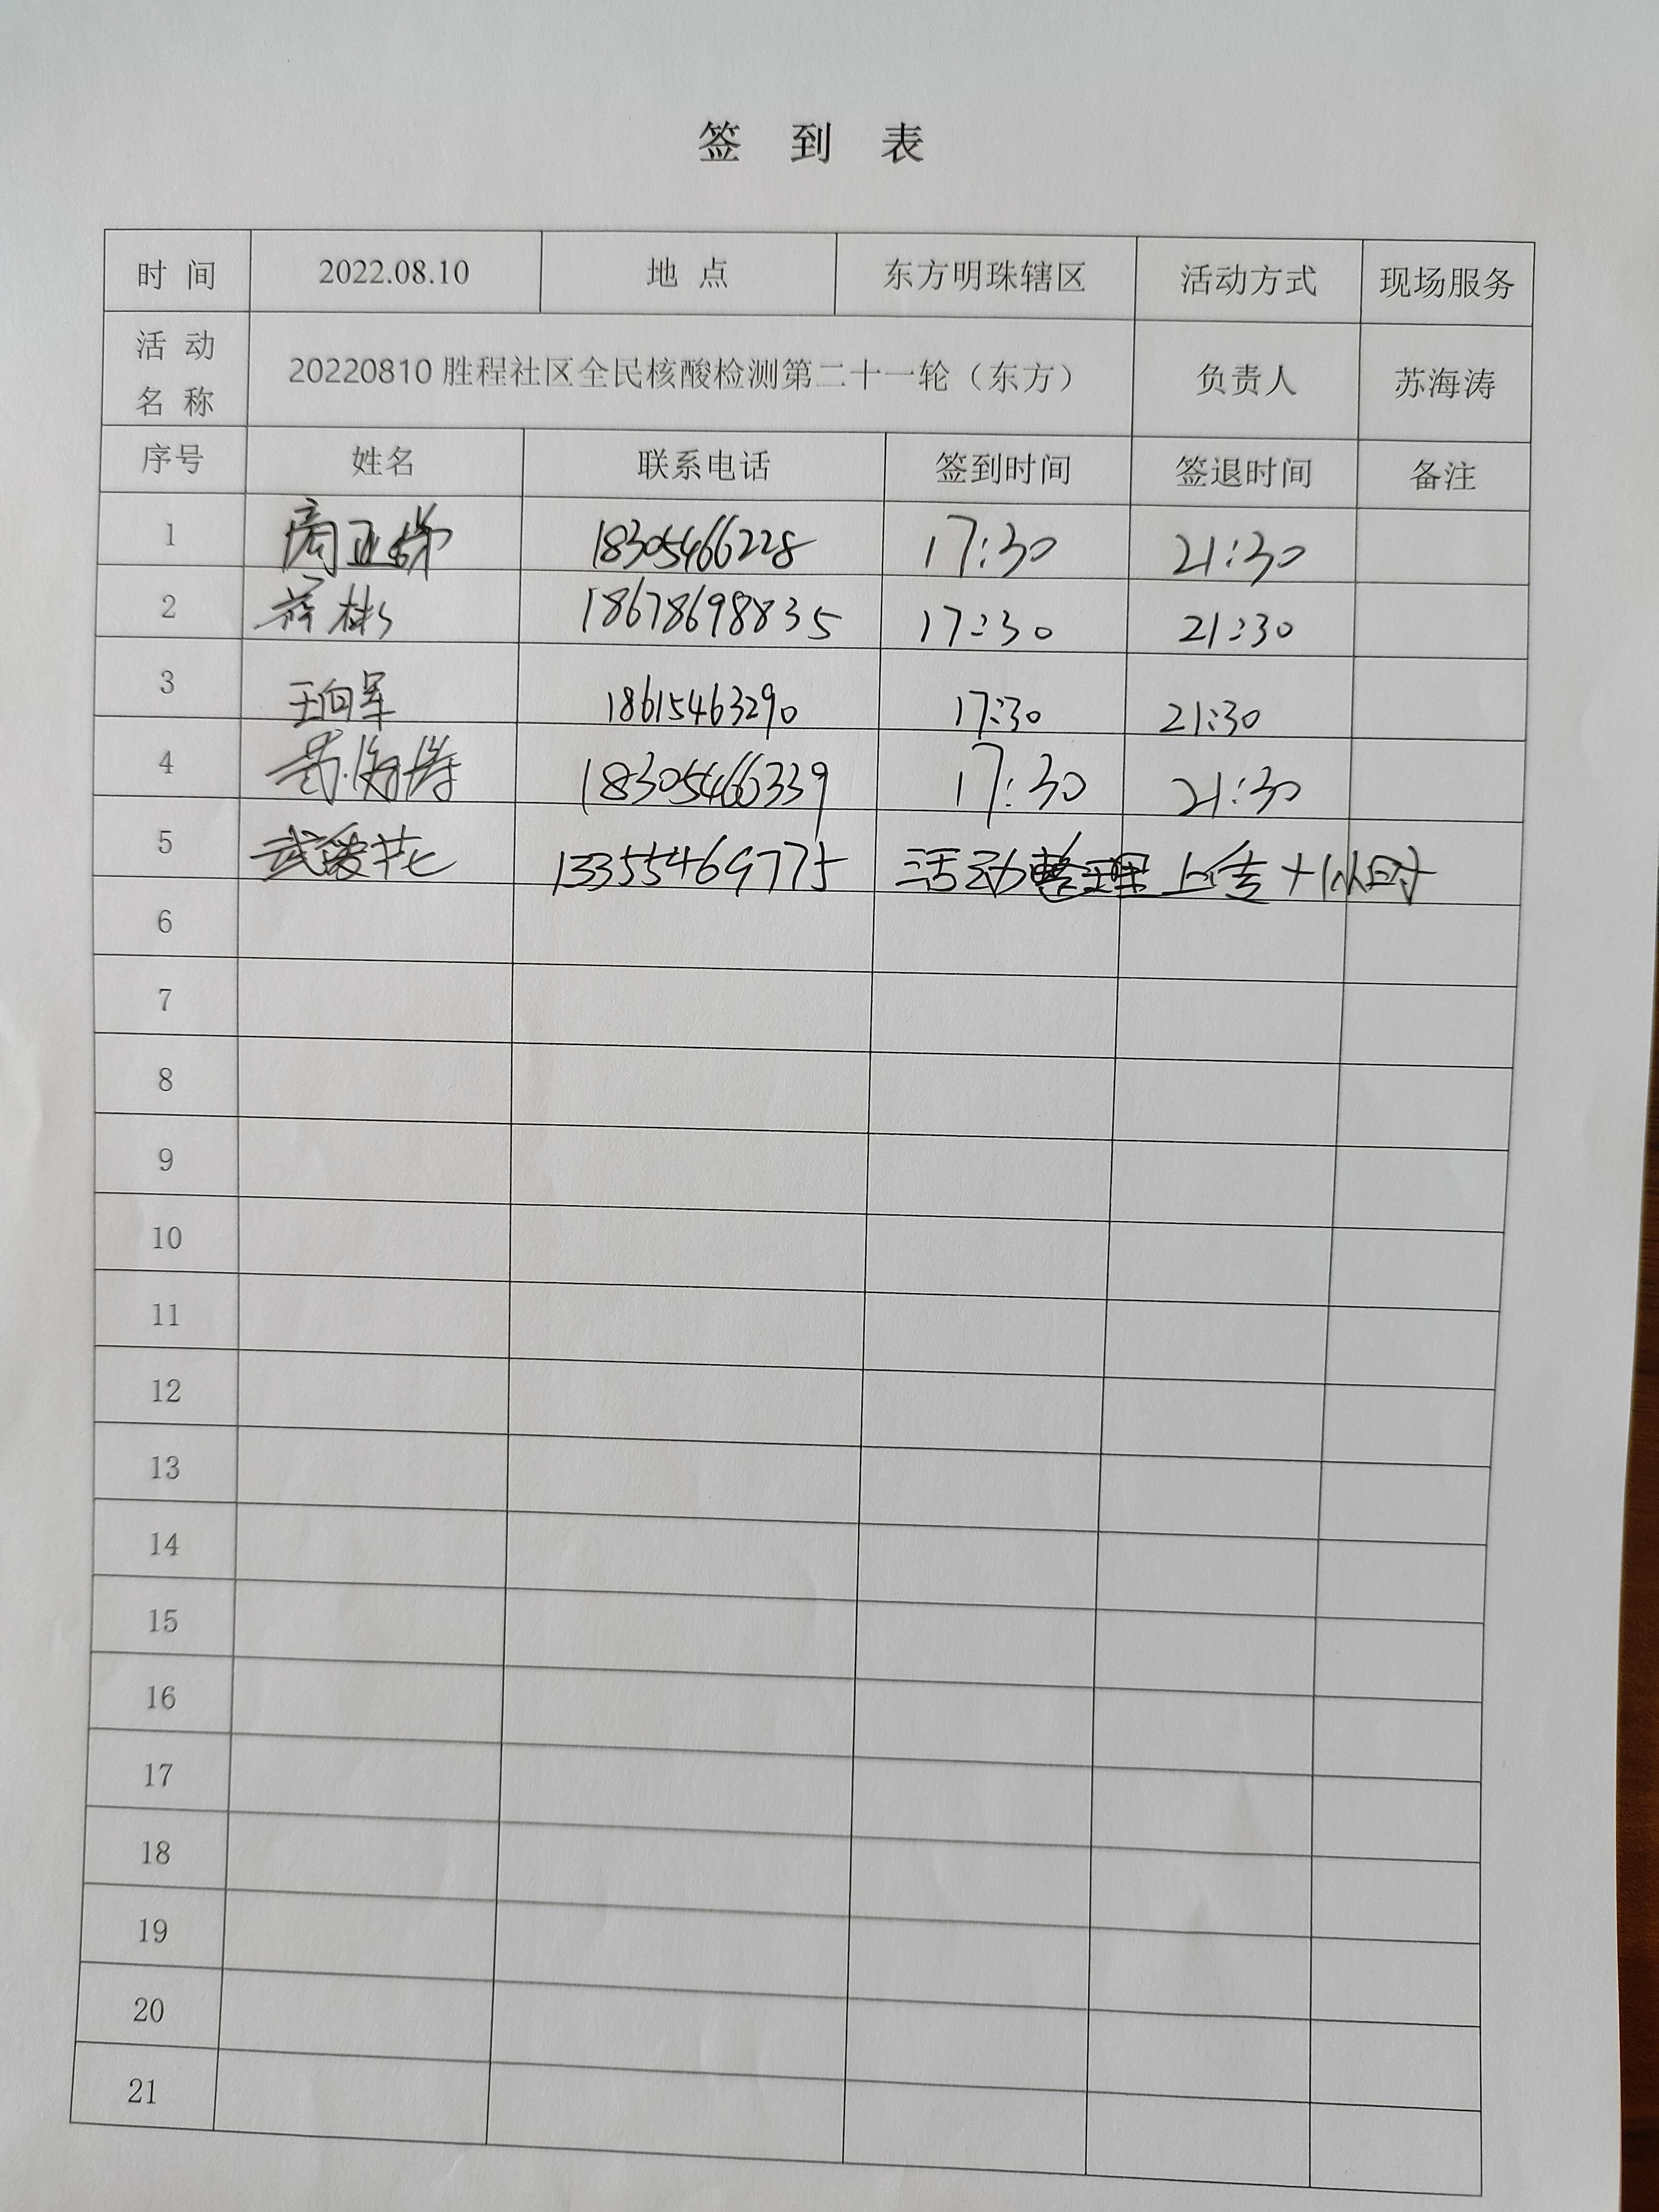 签 到 表
时 间 2022.08.10 地 点 东方明珠辖区 活动方式 现场服务
活 动 名 称 20220810 胜程社区全民核酸检测第二十一轮（东方） 负责人 苏海涛
序号 姓名 联系电话 签到时间 签退时间 备注
1 周亚 18305466228 17:30 21:30
2 彬 18678698835 17:30 21:30
3 王向军 18615463290 17:30 21:30
4 苏海涛 18305466339 17:30 21:30
5 武爱花 13355469775 活动整理上传+1小时
6
7
8
9
10
11
12
13
14
15
16
17
18
19
20
21